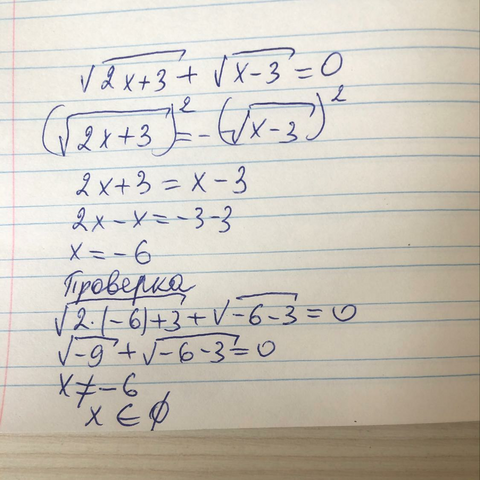 √2x+3 + √x-3 = 0
(√2x+3)² = -(√x-3)²
2x+3 = x-3
2x-x = -3-3
x = -6
Проверка
√2·(-6)+3 + √-6-3 = 0
√-9 + √-6-3 = 0
x ≠ -6
x ∈ ∅